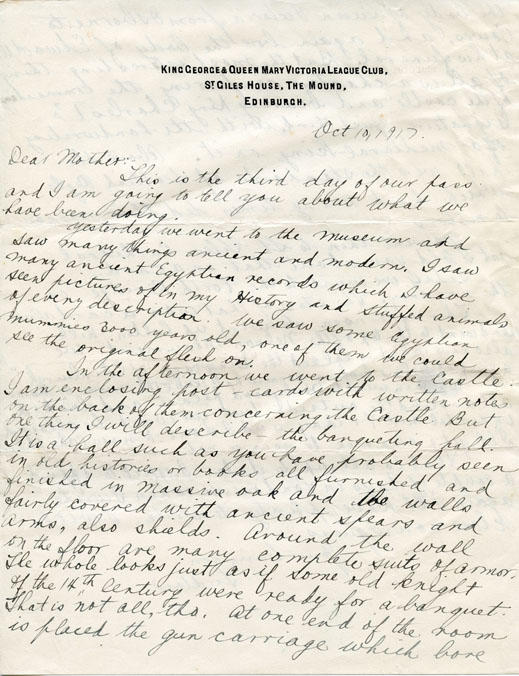 KING GEORGE & QUEEN MARY VICTORIA LEAGUE CLUB,
ST GILES HOUSE, THE MOUND,
EDINBURGH.
Oct 10, 1917.
Dear Mother:-
This is the third day of our pass
and I am going to tell you about what we
have been doing.
Yesterday we went to the museum and
saw many things ancient and modern. I saw
many ancient Egyptian records which I have
seen pictures of in my History and stuffed animals
of every description. We saw some Egyptian
mummies 3000 years old, one of them we could
see the original flesh on.
In the afternoon we went to the Castle.
I am enclosing post-cards with written notes
on the back of them concerning the Castle. But
one thing I will describe - the banqueting hall.
It is a hall such as you have probably seen
in old histories or books all furnished and
finished in massive oak and the walls
fairly covered with ancient spears and
arms, also shields. Around the wall
on the floor are many complete suits of armor.
The whole looks just as if some old knight
of the 14th century were ready for a banquet.
That is not all, tho. At one end of the room
is placed the gun carriage which bore